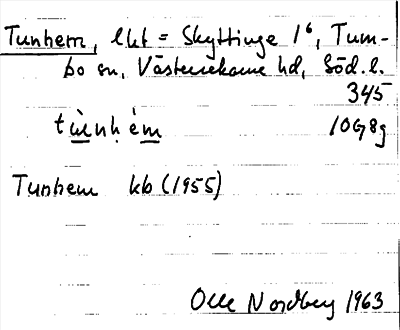 Tunhem, lkt = Skyttinge 1⁶, Tum-
bo sn, Västerrekarne hd, Söd. l.
345
tùnḥèm 10G8g
Tunhem kb (1955)
Olle Nordberg 1963